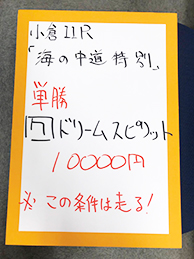 小倉11R
「海の中道特別」
単勝
7 ドリームスピリット
10000円
※この条件は走る!